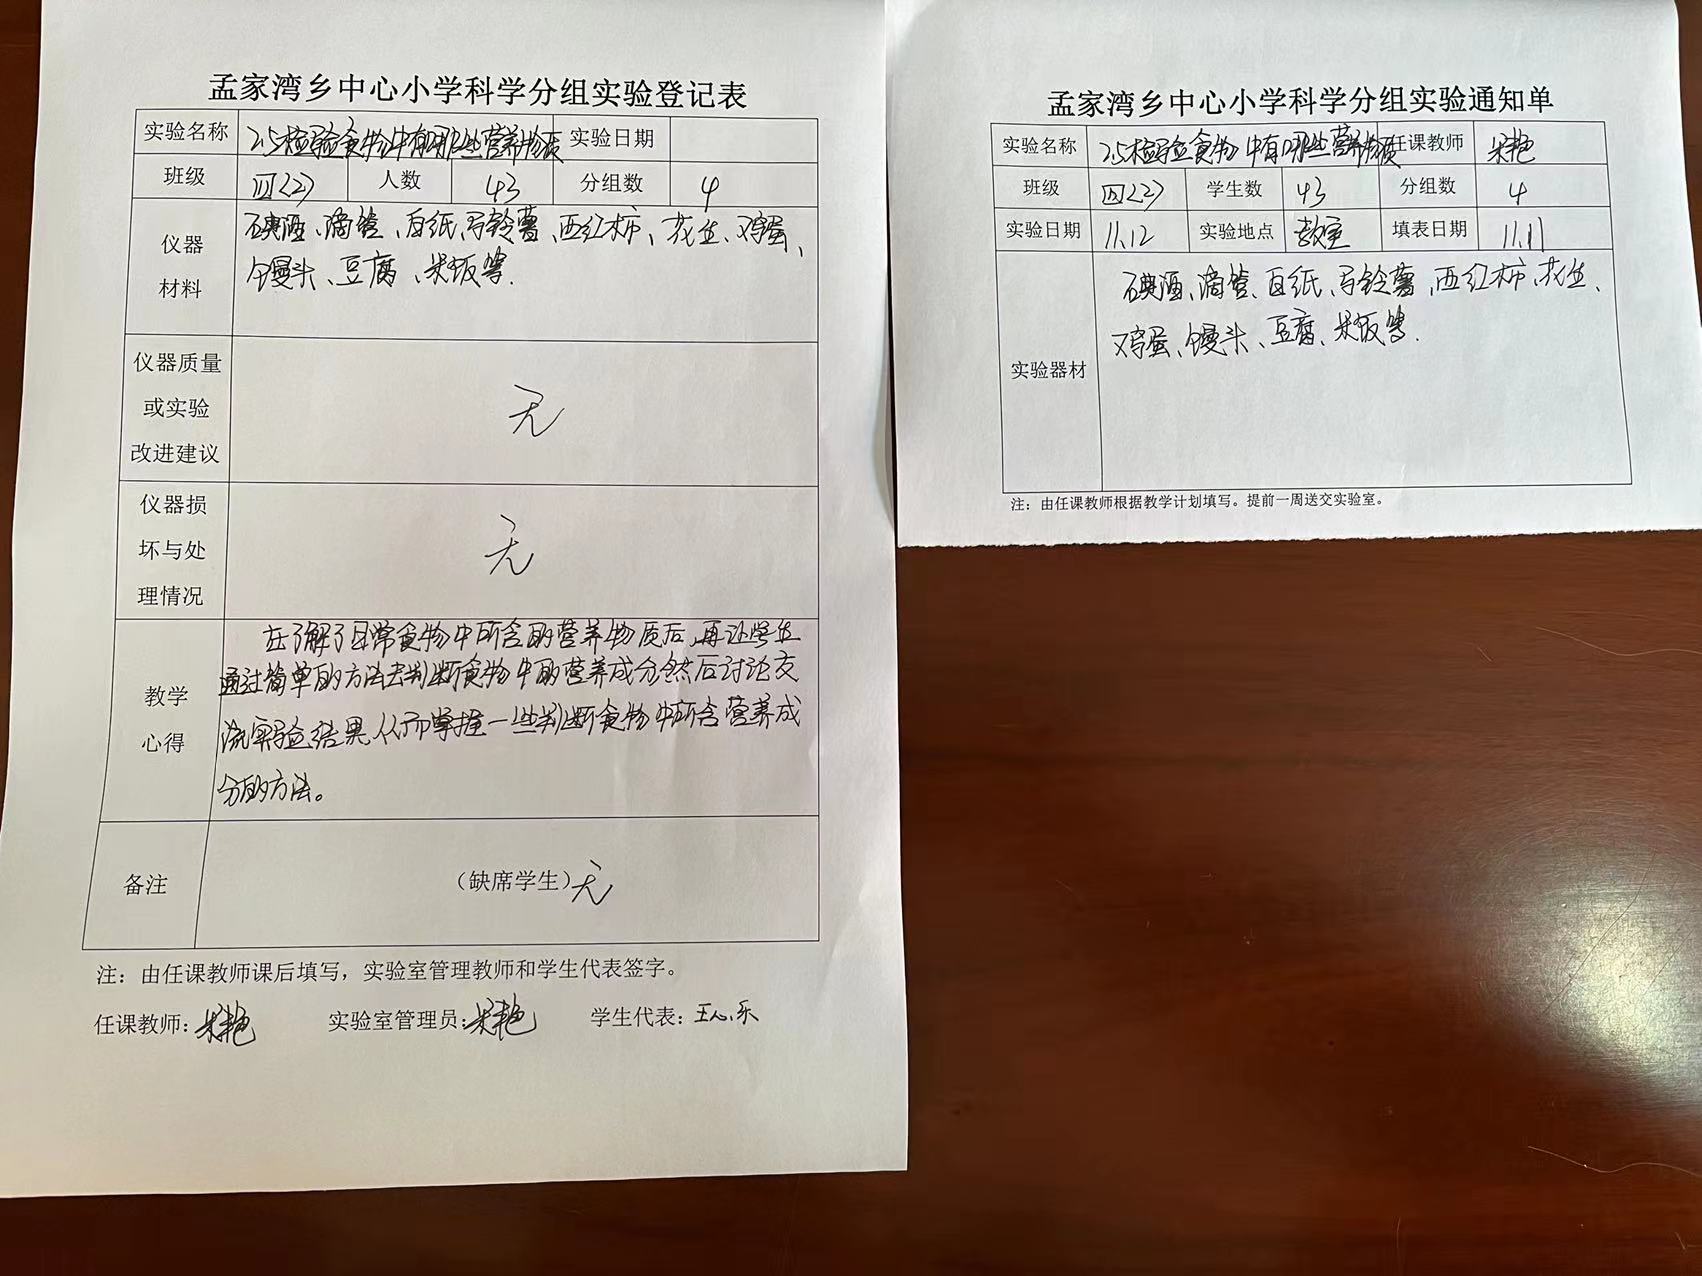 孟家湾乡中心小学科学分组实验登记表
实验名称 2.5检验食物中有哪些营养物质 实验日期
班级 四(2) 人数 43 分组数 4
仪器
材料
碘酒、滴管、白纸、马铃薯、西红柿、花生、鸡蛋、
馒头、豆腐、米饭等.
仪器质量
或实验
改进建议
无
仪器损
坏与处
理情况
无
教学
心得
在了解了日常食物中所含的营养物质后,再让学生
通过简单的方法去判断食物中的营养成分然后讨论交
流实验结果,从而掌握一些判断食物中所含营养成
分的方法。
备注 (缺席学生)无
注：由任课教师课后填写，实验室管理教师和学生代表签字。
任课教师: 实验室管理员: 学生代表: 王心乐
孟家湾乡中心小学科学分组实验通知单
实验名称 2.5检验食物中有哪些营养物质 任课教师
班级 四(2) 学生数 43 分组数 4
实验日期 11.12 实验地点 教室 填表日期 11.11
实验器材
碘酒、滴管、白纸、马铃薯、西红柿、花生、
鸡蛋、馒头、豆腐、米饭等.
注：由任课教师根据教学计划填写。提前一周送交实验室。